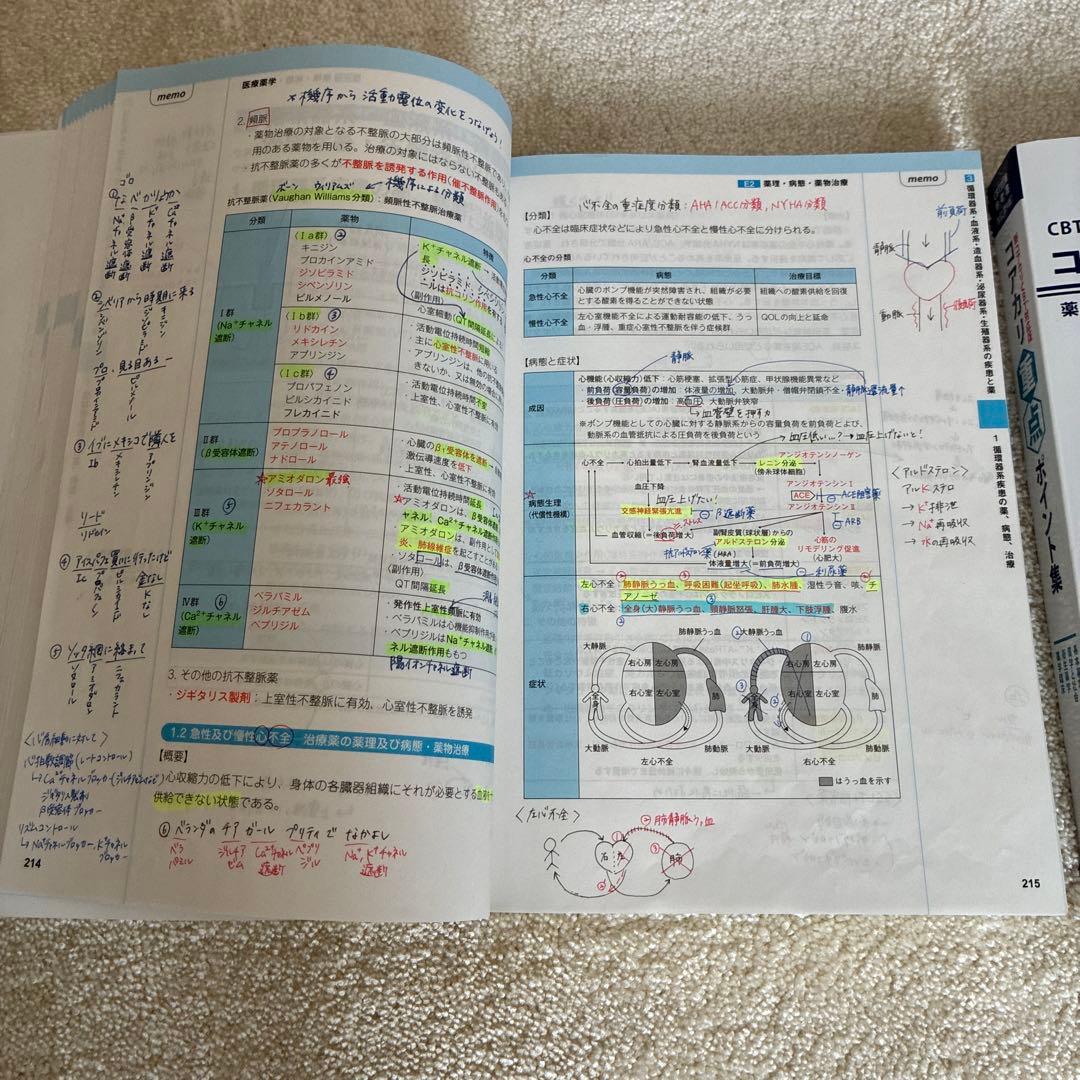 memo
医療薬学
* 機序から 活動電位の変化をつなげよう!
2. 頻脈
・薬物治療の対象となる不整脈の大部分は頻脈性不整脈であ
用のある薬物を用いる。治療の対象にはならない不整脈
・抗不整脈薬の多くが不整脈を誘発する作用(催不整脈作用)
ボーン ウィリアムズ ← 機序による分類
抗不整脈薬(Vaughan Williams分類):頻脈性不整脈治療薬
分類
薬物
特徴
Ⅰ群
(Na⁺チャネル
遮断)
(Ⅰa群) ②
キニジン
プロカインアミド
ジソピラミド
シベンゾリン
ピルメノール
・K⁺チャネル遮断→活動
長
ジソピラミド、シベンゾリン
ールは抗コリン作用
(副作用)
心室細動(QT間隔延長による
(Ⅰb群) ③
リドカイン
メキシレチン
アプリンジン
・活動電位持続時間短縮
・主に心室性不整脈に用いる
・アプリンジンは、他の抗不整脈
きないか、又は無効の場合に
(Ⅰc群) ④
プロパフェノン
ピルシカイニド
フレカイニド
・活動電位持続時間不変
・上室性、心室性不整脈に有効
Ⅱ群
(β受容体遮断)
プロプラノロール
アテノロール
ナドロール
・心臓のβ₁受容体を遮断→
激伝導速度を低下
・上室性、心室性不整脈に
Ⅲ群 ⑤
(K⁺チャネル
遮断)
☆アミオダロン 最強
ソタロール
ニフェカラント
・活動電位持続時間延長
☆アミオダロンは、β受容体
ャネル、Ca²⁺チャネル遮断作用
・アミオダロンは、副作用として
炎、肺線維症を起こすことが
・ソタロールは、β受容体遮断作用
(副作用)
QT間隔延長
Ⅳ群 ⑥
(Ca²⁺チャネル
遮断)
ベラパミル
ジルチアゼム
ベプリジル
・発作性上室性頻脈に有効
・ベラパミルは心機能抑制作用が
・ベプリジルはNa⁺チャネル
ネル遮断作用ももつ
陽イオンチャネル遮断
3. その他の抗不整脈薬
・ジギタリス製剤:上室性不整脈に有効、心室性不整脈を誘発
1.2 急性及び慢性心不全 治療薬の薬理及び病態・薬物治療
【概要】
心収縮力の低下により、身体の各臓器組織にそれが必要とする血液
供給できない状態である。
⑥ ベランダの チア ガール プリティで なかよし
ベラ
パミル
ジルチア
ゼム
Ca²⁺チャネル
遮断
ベプリ
ジル
Na⁺, K⁺チャネル
遮断
ゴロ
① な べ か りょうか
Na⁺チャネル遮断
β受容体遮断
K⁺チャネル遮断
Ca²⁺チャネル遮断
② シベリアから時期に来る
シベンゾリン
ジソピラミド
キニジン
プロ、見る目ある
プロカインアミド
ピルメノール
③ イブにメキシコで隣人を
Ib
メキシレチン
アプリンジン
リード
リドカイン
④ アイスパフェ買いに行ったけど
Ic
プロパフェノン
ピルシカイニド
フレカイニド
⑤ ソッタ網に絡まって
ソタロール
アミオダロン
ニフェカラント
〈心房細動に対して〉
心拍数調節(レートコントロール)
↳ Ca²⁺チャネルブロッカー
ジギタリス製剤
β受容体ブロッカー
リズムコントロール
↳ Na⁺チャネルブロッカー, K⁺チャネル
ブロッカー
214
E2 薬理・病態・薬物治療
memo
3
循環器系・血液系・造血器系・泌尿器系・生殖器系の疾患と薬
1 循環器系疾患の薬、病態、治療
心不全の重症度分類:AHA/ACC分類, NYHA分類
【分類】
心不全は臨床症状などにより急性心不全と慢性心不全に分けられる。
心不全の分類
分類
病態
治療目標
急性心不全
心臓のポンプ機能が突然障害され、組織が必要
とする酸素を得ることができない状態
組織への酸素供給を回復
慢性心不全
左心室機能不全による運動耐容能の低下、うっ
血・浮腫、重症心室性不整脈を伴う症候群
QOLの向上と延命
【病態と症状】
静脈
成因
心機能(心収縮力)低下:心筋梗塞、拡張型心筋症、甲状腺機能異常など
前負荷(容量負荷)の増加:体液量の増加、大動脈弁・僧帽弁閉鎖不全・静脈還流量↑
・後負荷(圧負荷)の増加:高血圧、大動脈弁狭窄
↳血管壁を押す力
※ポンプ機能としての心臓に対する静脈系からの容量負荷を前負荷とよび、
動脈系の血管抵抗による圧負荷を後負荷という
→血圧低い...?→血圧上げないと!
☆病態生理
(代償性機構)
心不全
心拍出量低下
腎血流量低下
レニン分泌
(傍糸球体細胞)
アンジオテンシノーゲン
アンジオテンシンⅠ
ACE
⊖ACE阻害薬
アンジオテンシンⅡ
⊖ARB
血圧下降
血圧上げたい!
交感神経緊張亢進
⊖β遮断薬
血管収縮(=後負荷増大)
副腎皮質(球状層)からの
アルドステロン分泌
抗アルドステロン薬(MRA)
体液量増大(=前負荷増大)
⊖利尿薬
心筋の
リモデリング促進
(心肥大)
症状
左心不全:肺静脈うっ血、呼吸困難(起坐呼吸)、肺水腫、湿性ラ音、咳、チ
アノーゼ
右心不全:全身(大)静脈うっ血、頸静脈怒張、肝腫大、下肢浮腫、腹水
大静脈
肺静脈うっ血
右心房
左心房
右心室
左心室
全身
肺
大動脈
肺動脈
左心不全
②大静脈うっ血
肺静脈
右心房
左心房
右心室
左心室
全身
肺
大動脈
肺動脈
右心不全
はうっ血を示す
〈左心不全〉
②肺静脈うっ血
右
左
肺
前負荷
静脈
動脈
後負荷
〈アルドステロン〉
アルKステロ
→ K⁺排泄
→ Na⁺再吸収
→ 水の再吸収
215
CBT
コ
薬
コアカリ重点ポイント集